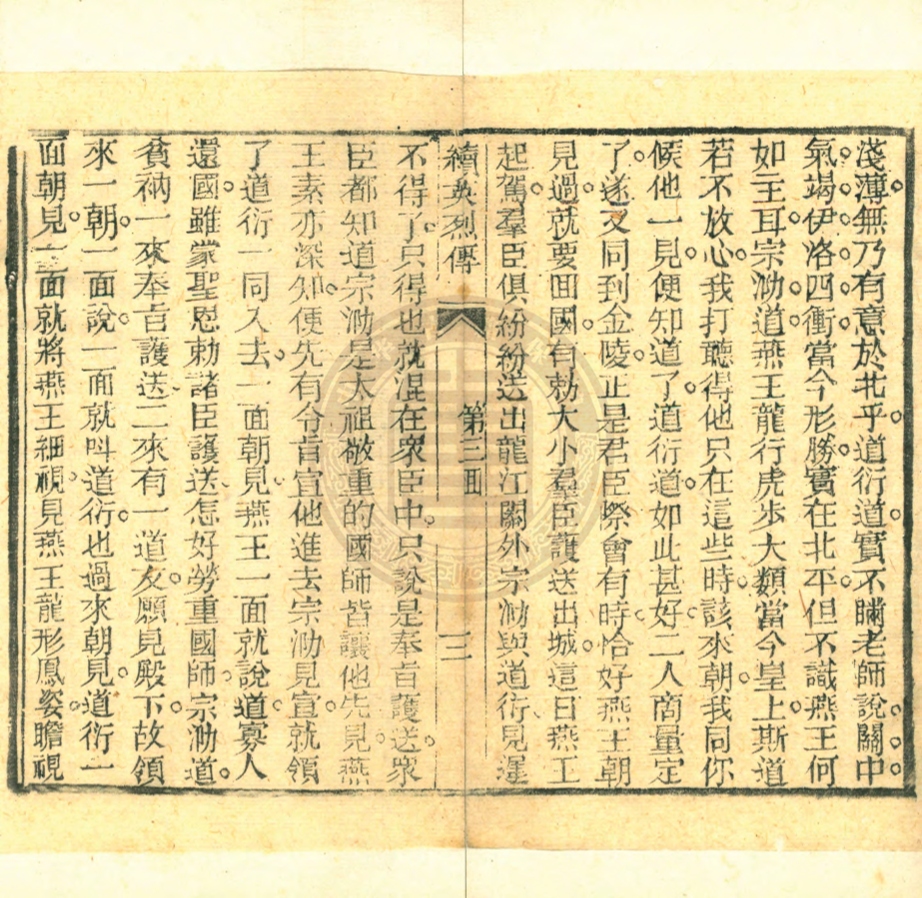 淺薄無乃有意於北乎道衍道實不瞞老師說關中
氣竭伊洛四衝當今形勝實在北平但不識燕王何
如主耳宗泐道燕王龍行虎步大類當今皇上斯道
若不放心我打聽得他只在這些時該來朝我同你
候他一見便知道了道衍道如此甚好二人商量定
了遂又同到金陵正是君臣際會有時恰好燕王朝
見過就要回國有勅大小羣臣護送出城這日燕王
起駕羣臣俱紛紛送出龍江關外宗泐與道衍見遲
續英烈傳 第三回 三
不得了只得也就混在衆臣中只說是奉旨護送衆
臣都知道宗泐是太祖敬重的國師皆讓他先見燕
王素亦深知便先有令旨宣他進去宗泐見宣就領
了道衍一同入去一面朝見燕王一面就說道寡人
還國雖蒙聖恩勅諸臣護送怎好勞重國師宗泐道
貧衲一來奉旨護送二來有一道友願見殿下故領
來一朝一面說一面就叫道衍也過來朝見道衍一
面朝見一面就將燕王細視見燕王龍形鳳姿瞻視